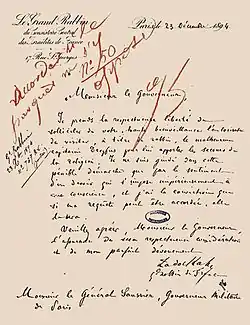 Le Grand Rabbin
du Consistoire Central
des Israélites de France
17, Rue St Georges
Paris, le 23 Décembre 1894
Monsieur le Gouverneur
Je prends la respectueuse liberté de
solliciter de votre haute bienveillance l'autorisation
de visiter, à titre de rabbin, le malheureux
capitaine Dreyfus pour lui apporter les secours de
la religion. Je ne suis guidé dans cette
pénible démarche que par le sentiment
d'un devoir qui s'impose impérieusement à
ma conscience, et j'ai la conviction que
si ma requête peut être accordée, elle
le sera.
Veuillez agréer, Monsieur le Gouverneur,
l'assurance de ma respectueuse considération
et de mon parfait dévouement
Zadoc Kahn
Grand Rabbin de France
Monsieur le Général Saussier, Gouverneur Militaire
de Paris